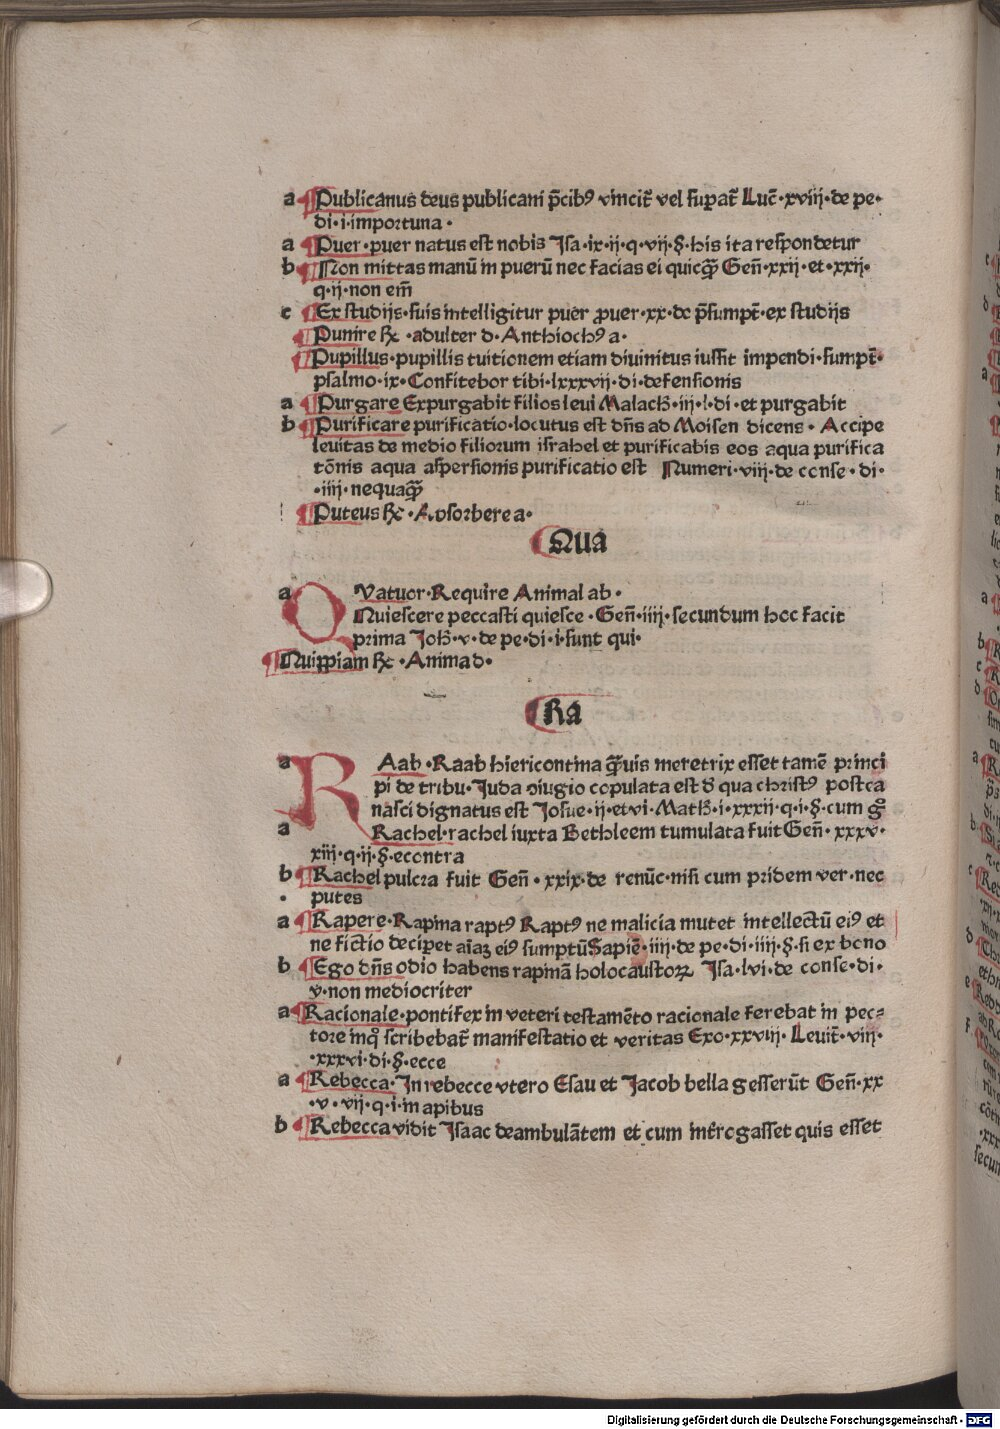 a Publicanus deus publicani p̄cibꝰ vincit̄ vel suꝑat̄ Luc̄·xviij·de pe·
di·i·importuna·
a Puer·puer natus est nobis Isa·ix·ij·q·vij·§·his ita respondetur
b Non mittas manū in puerū nec facias ei quicq̄ꝫ Gen̄·xxij·et·xxij·
q·ij·non em̄
c Ex studijs·suis intelligitur puer ꝓuer·xx·de p̄sumpt̄·ex studijs
Punire ℞·adulter d·Anthiochꝰ a·
Pupillus·pupillis tuitionem etiam diuinitus iussit impendi·sumpt̄·
psalmo·ix·Confitebor tibi·lxxxvij·di·defensionis
a Purgare Expurgabit filios leui Malach̄·iij·l·di·et purgabit
b Purificare purificatio·locutus est dn̄s ad Moisen dicens·Accipe
leuitas de medio filiorum israhel et purificabis eos aqua purifica
tōnis aqua aspersionis purificatio est Numeri·viij·de conse·di·
·iiij·nequaq̄ꝫ
Puteus ℞·Absorbere a·
Qua
a QVatuor·Require Animal ab·
Quiescere peccasti quiesce·Gen̄·iiij·secundum hoc facit
prima Joh̄·v·de pe·di·i·sunt qui·
Quippiam ℞·Anima d·
Ra
a RAab·Raab hiericontina q̄ꝫuis meretrix esset tamē princi
pi de tribu·Juda ↄiugio copulata est d̄ qua christꝰ postea
nasci dignatus est Josue·ij·et vi·Math̄·i·xxxij·q·i·§·cum g̊
a Rachel·rachel iuxta Bethleem tumulata fuit Gen̄·xxxv·
xiij·q·ij·§·econtra
b Rachel pulcra fuit Gen̄·xxix·de renūc·nisi cum pridem ver·nec
putes
a Rapere·Rapina raptꝰ Raptꝰ ne malicia mutet intellectū eiꝰ et
ne fictio deciꝑet aīaꝫ eiꝰ sumptū Sapiē·iiij·de pe·di·iiij·§·si ex bono
b Ego dn̄s odio habens rapinā holocaustoꝝ Isa·lvi·de conse·di·
v·non mediocriter
a Racionale·pontifex in veteri testamēto racionale ferebat in pec⸗
tore inq̊ scribebat̄ manifestatio et veritas Exo·xxviij·Leuit̄·viij·
·xxxvi·di·§·ecce
a Rebecca·In rebecce vtero Esau et Jacob bella gesserūt Gen̄·xx
·v·vij·q·i·in apibus
b Rebecca vidit Isaac deambulātem et cum int̄rogasset quis esset
Digitalisierung gefördert durch die Deutsche Forschungsgemeinschaft · DFG